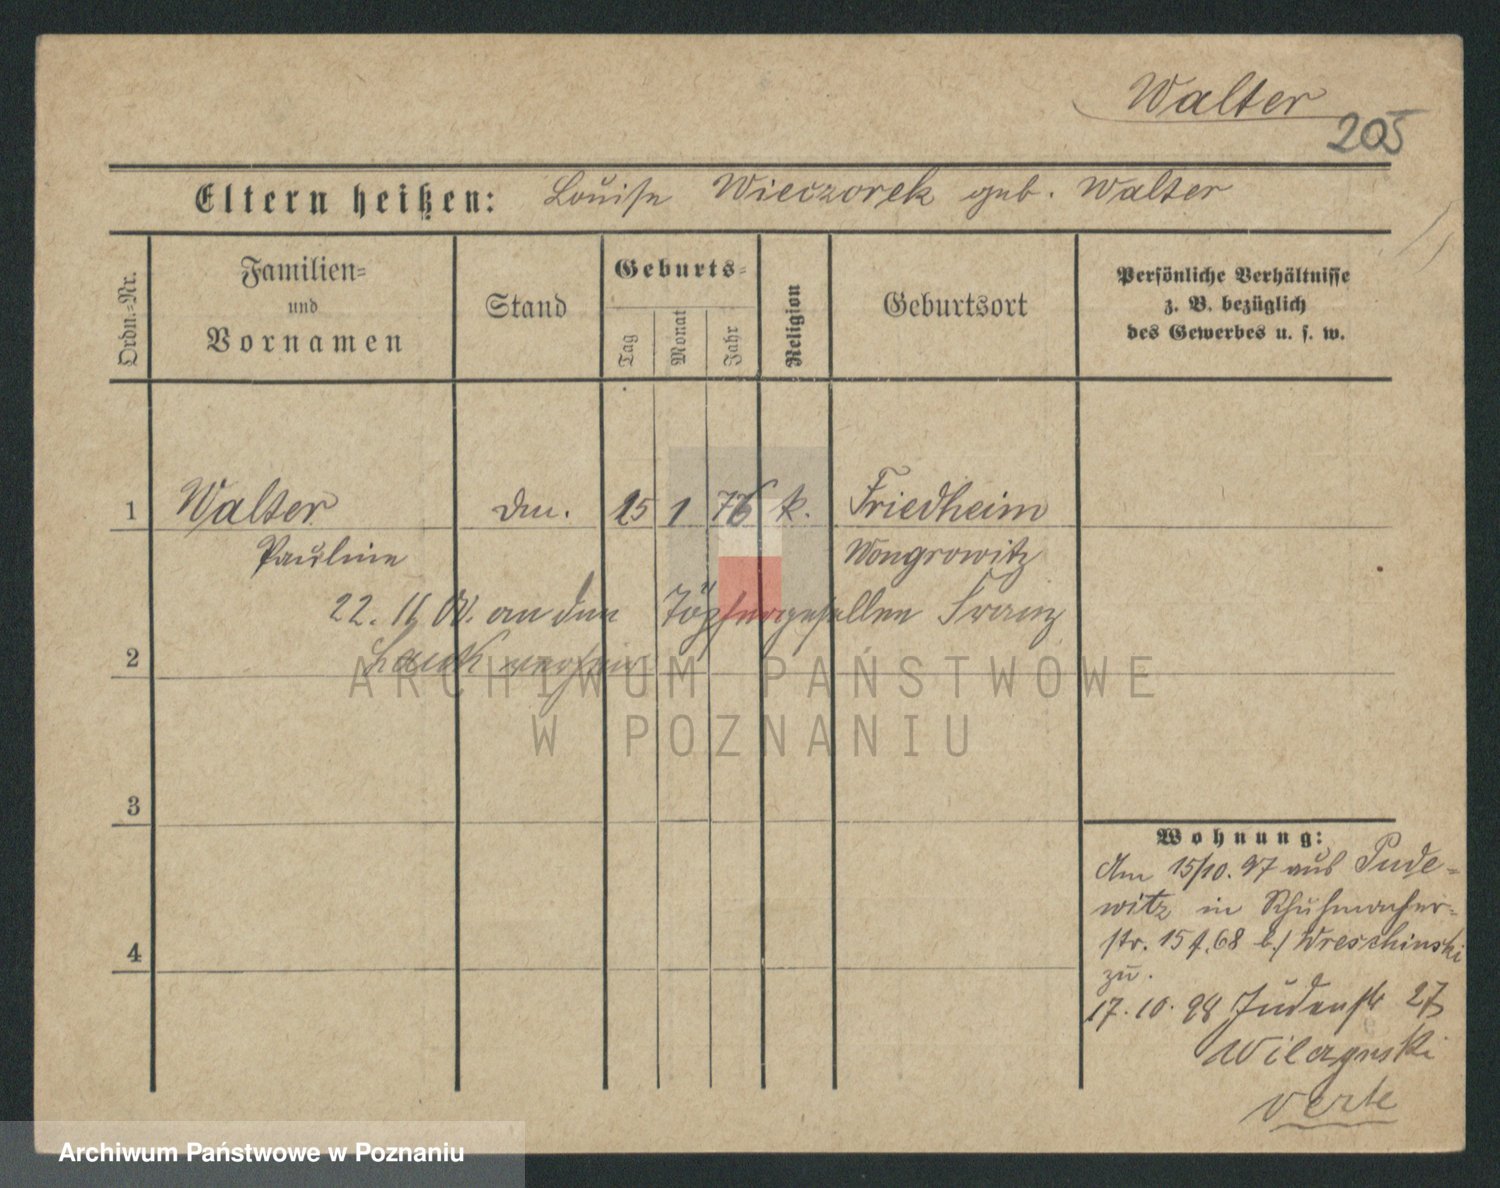 Walter
205
Eltern heißen: Louise Wieczorek geb. Walter
Ordn.=Nr.
Familien=
und
Vornamen
Stand
Geburts=
Tag
Monat
Jahr
Religion
Geburtsort
Persönliche Verhältnisse
z. B. bezüglich
des Gewerbes u. s. w.
1 Walter 15 1 76 k. Friedheim
Pauline Wongrowitz
22. 11. 00. an den Töpfergesellen Franz
2
ARCHIWUM PAŃSTWOWE
W POZNANIU
3
4
Wohnung:
Am 15/10. 97 aus Pude-
witz in Schuhmacher-
str. 15 b./ Wreschinski
zu.
17. 10. 98 Judenstr 27
verte
Archiwum Państwowe w Poznaniu